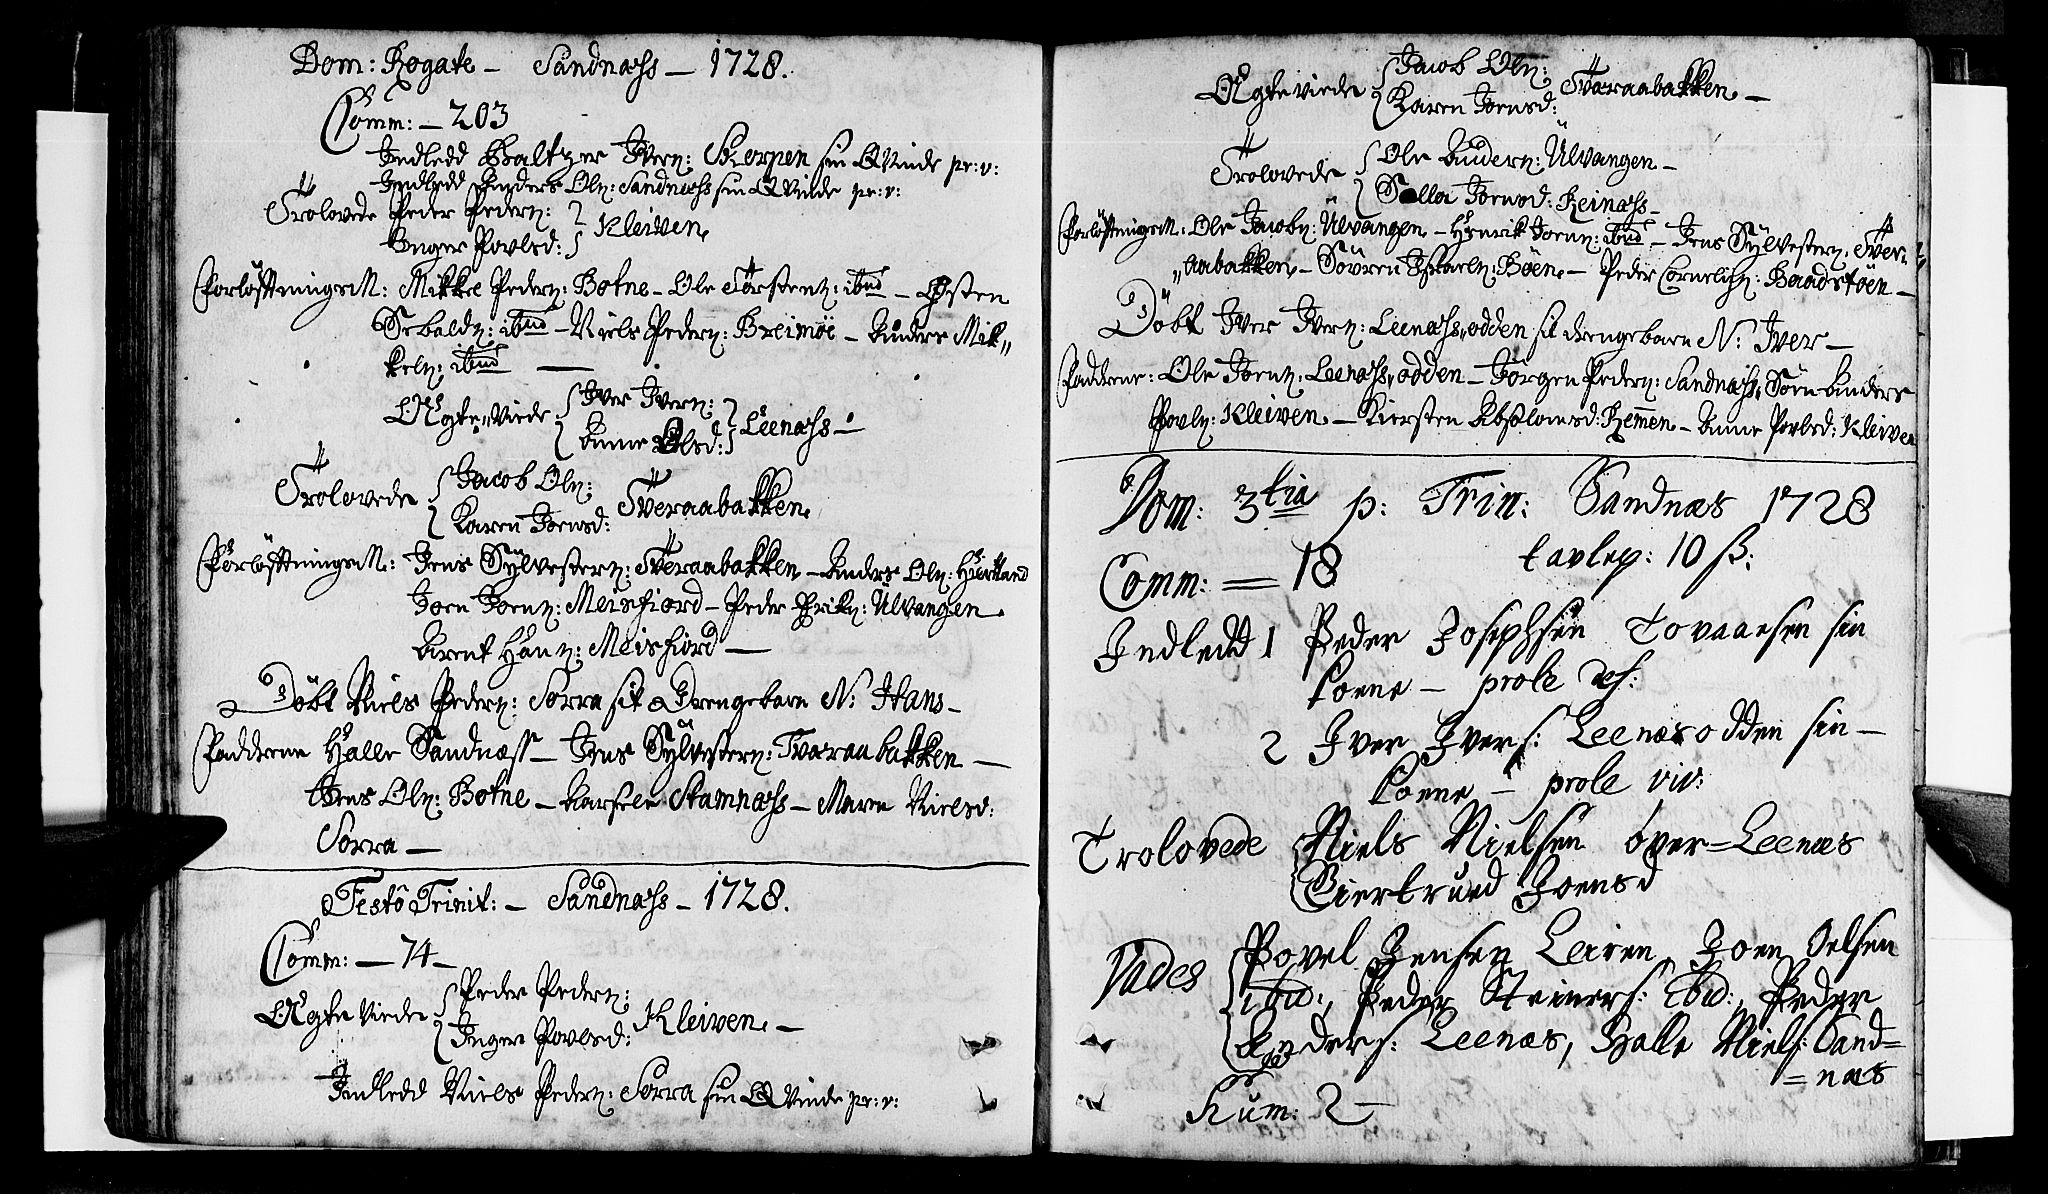 Dom: Rogate – Sandnæss – 1728.
Comm: – 203
Indledd Baltzer Ivern: Skorpen sin Qvinde pr: v:
Indledd Anders Oln: Sandnæss sin Qvinde pr: v:
Trolovede Peder Pedern:
Inger Povlsd: Kleiven.
Forlöftnings M: Mikkel Pedern: Botne – Ole Torstenn: ibid – Osten
Sebaldn: ibid – Niels Pedern: Breimöe – Anders Mik„
keln: ibid –
Ægte„Viede Iver Ivern: Leenæss –
Anne Olsd:
Trolovede Jacob Oln: Tveraabakken.
Karen Joensd:
Forlöftnings M: Jens Sÿlvestern: Tveraabakken – Anders Oln: Hiartland
Joen Joenn: Meisfiord – Peder Erikn: Ulvangen.
Arent Hann: Meisfiord –
Döbt Niels Pedern: Sorra sit Drengebarn N: Hans –
Fadderne Halle Sandnæss – Jens Sÿlvestern: Tværaabakken –
Jens Oln: Botne – Stamnæss – Maren Nielsd:
Sorra –
Festô Trinit: – Sandnæss – 1728.
Comm: – 74 –
Ægte Viede Peder Pedern: Kleiven. –
Inger Povlsd:
Indledd Niels Pedern: Sorra sin Qvinde pr: v:
Ægte viede Jacob Oln: Tværaabakken –
Karen Joensd:
Trolovede Ole Andern: Ülvangen –
Joensd: Reinæss –
Forlöftnings M: Ole Jacobn: Ülvangen – Henrik Joenn: ibid – Jens Sÿlvestern: Tver„
„aabakken – Sövren Böen – Peder Cornelisn: Baadstöen –
Döbt Iver Ivern: Leenæss„odden sit drengebarn N: Iver –
Fadderne: Ole Joenn: Leenæss„odden – Jörgen Pedern: Sandnæss, Sören Anders
Povln: Kleiven – Kiersten Absolomsd: Remmen – Anne Povlsd: Kleiven
Dom: 3tia p: Trin: Sandnæs 1728
Comm: = 18 tavlep: 10 ß:
Indledd 1 Peder Josephsen Tovaasen sin
Kone – prole def:
2 Iver Ivers: Leenæsodden sin –
Kone – prole viv:
Trolovede Niels Nielsen över=Leenæs
Giertrued Joensd
Vades Povel Jensen Leiren, Joen Oelsen
ibid:, Peder Steiners: ibid:, Peder
Anders: Leenæs, Halle Niels: Sand=
=næs
Sum: 2 –